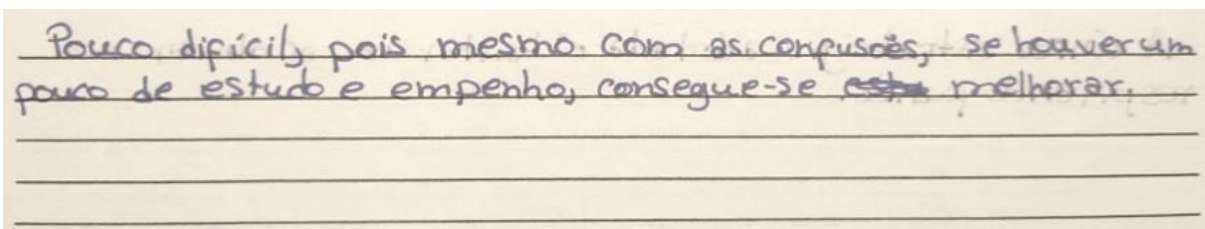 Pouco difícil, pois mesmo com as confusões, se houver um
pouco de estudo e empenho, consegue-se melhorar.